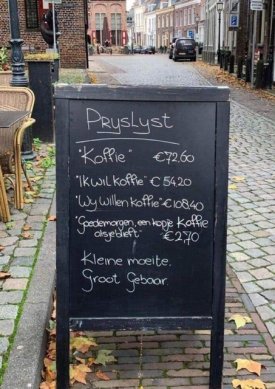 Pryslyst
"Koffie" €72,60
"Ik wil koffie" € 54,20
"Wy willen koffie" €108,40
"Goedemorgen, een kopje Koffie
alsjeblieft." €2,70
Kleine moeite.
Groot Gebaar.